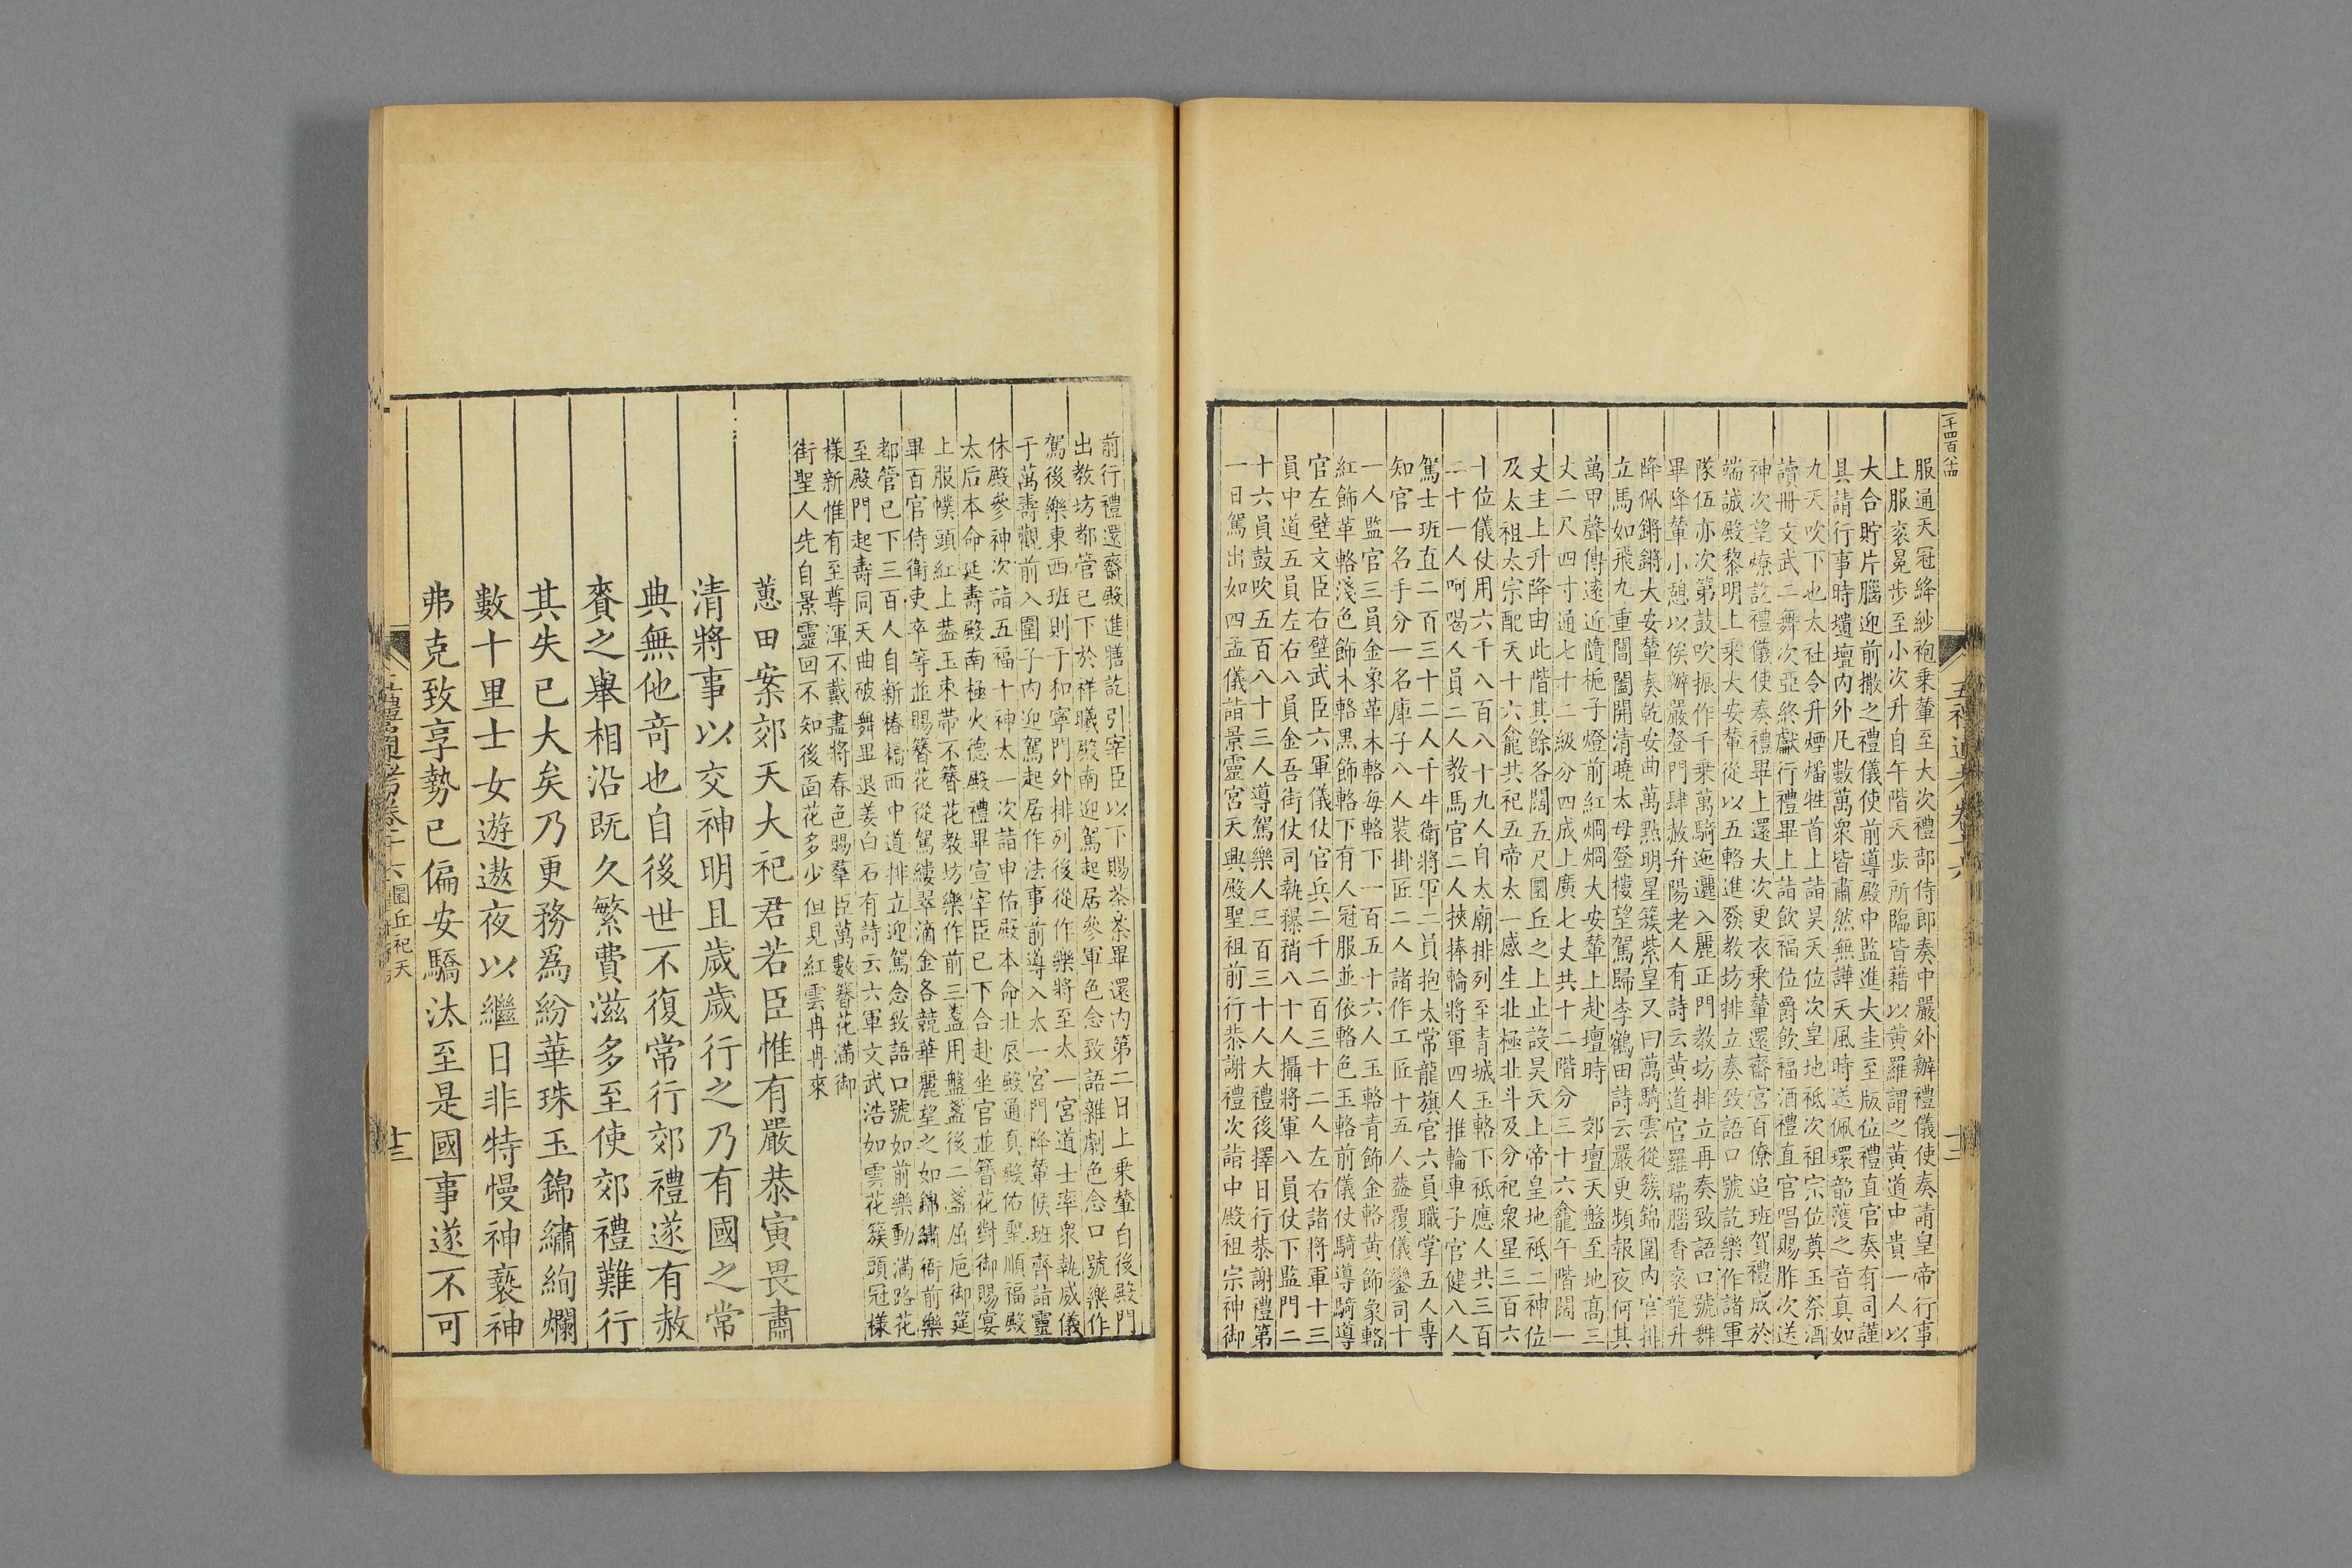 一千四百六十四
服通天冠絳紗袍乗輦至大次禮部侍郎奏中嚴外辦禮儀使奏請皇帝行事
上服衮冕步至小次升自午階天步所臨皆藉以黃羅謂之黃道中貴一人以
大合貯片腦迎前撒之禮儀使前導殿中監進大圭至版位禮直官奏有司謹
具請行事時壝壇内外凡數萬衆皆肅然無譁天風時送佩環韶濩之音真如
九天吹下也太社令升煙燔牲首上詣昊天位次皇地祗次祖宗位奠玉祭酒
讀冊文武二舞次亞終獻行禮畢上詣飲福位爵飲福酒禮直官唱賜胙次送
神次望燎訖禮儀使奏禮畢上還大次更衣乘輦還齋宮百僚追班賀禮成於
端誠殿黎明上乘大安輦從以五輅進發教坊排立奏致語口號訖樂作諸軍
隊伍亦次第鼓吹振作千乘萬騎迤邐入麗正門教坊排立再奏致語口號舞
畢降輦小憩以俟辦嚴登門肆赦弁陽老人有詩云黃道宮羅瑞腦香衮龍升
降佩鏘鏘大安輦奏乾安曲萬㸃明星簇紫皇又曰萬騎雲從簇錦圍内宮排
立馬如飛九重閶闔開清曉太母登樓望駕歸李鶴田詩云嚴更頻報夜何其
萬甲聲傳遠近隨栀子燈前紅烱烱大安輦上赴壇時　郊壇天盤至地高三
丈二尺四寸通七十二級分四成上廣七丈共十二階分三十六龕午階闊一
丈主上升降由此階其餘各闊五尺圜丘之上止設昊天上帝皇地祗二神位
及太祖太宗配天十六龕共祀五帝太一感生北極北斗及分祀衆星三百六
十位儀仗用六千八百八十九人自太廟排列至青城玉輅下祗應人共三百
二十一人呵喝人員二人教馬官二人挾捧輪將軍四人推輪車子官健八人
駕士班直二百三十二人千牛衛將軍二員抱太常龍旗官六員職掌五人專
知官一名手分一名庫子八人裝掛匠二人諸作工匠十五人葢覆儀鑾司十
一人監官三員金象革木輅每輅下一百五十六人玉輅青飾金輅黃飾象輅
紅飾革輅淺色飾木輅黑飾輅下有人冠服並依輅色玉輅前儀仗騎導騎導
官左壁文臣右壁武臣六軍儀仗官兵二千二百三十二人左右諸將軍十三
員中道五員左右八員金吾街仗司執穤矟八十人攝將軍八員仗下監門二
十六員鼓吹五百八十三人導駕樂人三百三十人大禮後擇日行恭謝禮第
一日駕出如四孟儀詣景靈宮天興殿聖祖前行恭謝禮次詣中殿祖宗神御
前行禮還齋殿進膳訖引宰臣以下賜茶茶畢還内第二日上乗輦自後殿門
出教坊都管已下於祥曦殿南迎駕起居參軍色念致語雜劇色念口號樂作
駕後樂東西班則于和寧門外排列後從作樂將至太一宮道士率衆執威儀
于萬壽觀前入圍子内迎駕起居作法事前導入太一宮門降輦候班齊詣靈
休殿參神次詣五福十神太一次詣申佑殿本命北辰殿通真殿佑聖順福殿
太后本命延壽殿南極火德殿禮畢宣宰臣已下合赴坐官並簪花對御賜宴
上服幞頭紅上葢玉束帶不簪花教坊樂作前三盞用盤盞後二盞屈卮御筵
畢百官侍衛吏卒等並賜簪花從駕縷翠滴金各競華麗望之如錦繡衙前樂
都管已下三百人自新樁橋西中道排立迎駕念致語口號如前樂動滿路花
至殿門起壽同天曲破舞畢退姜白石有詩云六軍文武浩如雲花簇頭冠様
様新惟有至尊渾不戴盡將春色賜羣臣萬數簪花滿御
街聖人先自景靈回不知後面花多少但見紅雲冉冉來
蕙田案郊天大祀君若臣惟有嚴恭寅畏肅
清將事以交神明且歲歲行之乃有國之常
典無他奇也自後世不復常行郊禮遂有赦
賚之舉相沿既久繁費滋多至使郊禮難行
其失已大矣乃更務為紛華珠玉錦繡絢爛
數十里士女遊遨夜以繼日非特慢神褻神
弗克致享勢已偏安驕汰至是國事遂不可
五禮通考卷十六 圜丘祀天
十三